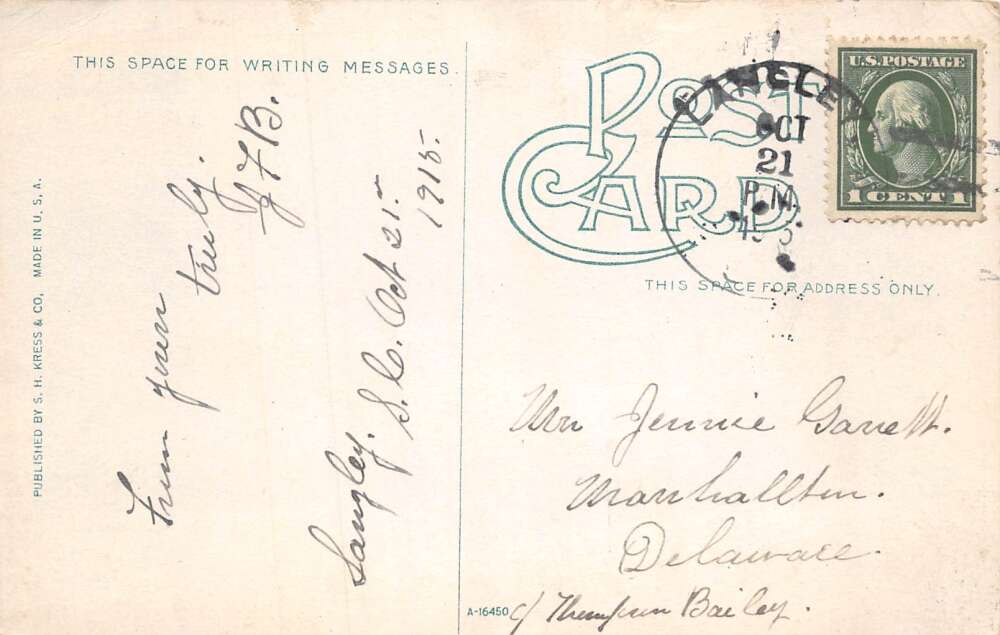 THIS SPACE FOR WRITING MESSAGES.
POST CARD
LANGLEY
OCT
21
P.M.
U.S. POSTAGE
1 CENT 1
THIS SPACE FOR ADDRESS ONLY.
PUBLISHED BY S. H. KRESS & CO, MADE IN U. S. A.
From your
truly.
J F B.
Langley.
S. C. Oct 21 -
1915 -
Mrs Jennie Garrett.
Marshallton.
Delaware.
c/ Thompson Bailey.
A-16450